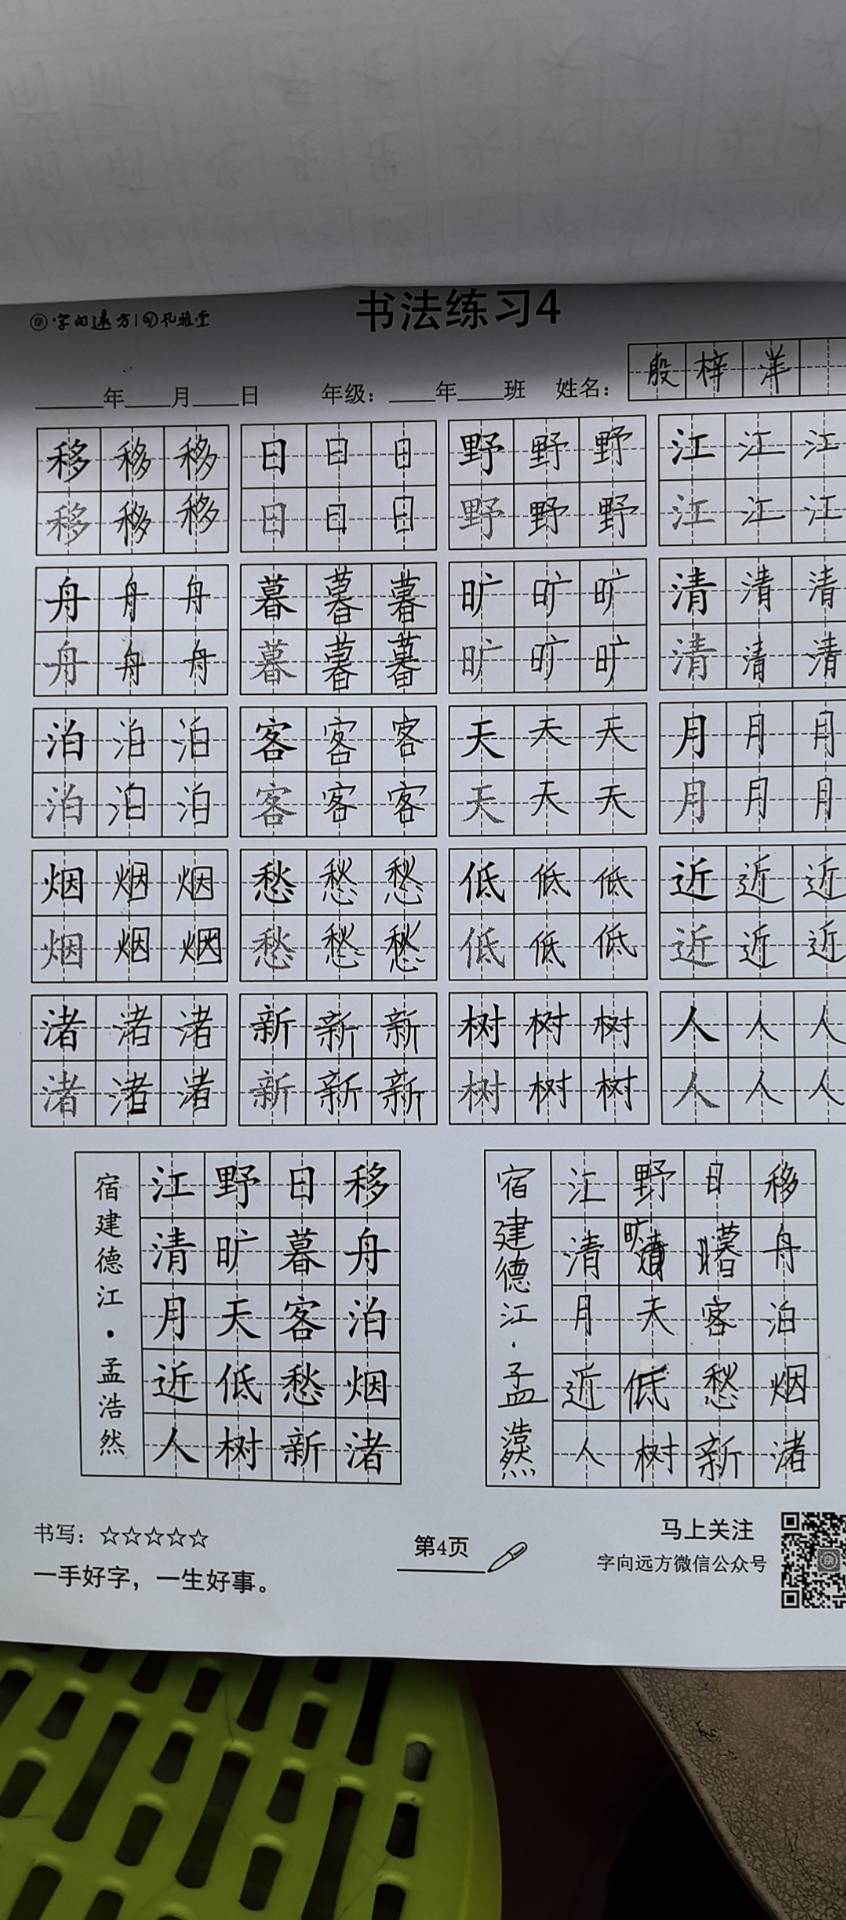 字向远方 | 孔雅堂
书法练习4
____年____月____日 年级：____年____班 姓名：殷梓洋
移移移 日日日 野野野 江江江
移移移 日日日 野野野 江江江
舟舟舟 暮暮暮 旷旷旷 清清清
舟舟舟 暮暮暮 旷旷旷 清清清
泊泊泊 客客客 天天天 月月月
泊泊泊 客客客 天天天 月月月
烟烟烟 愁愁愁 低低低 近近近
烟烟烟 愁愁愁 低低低 近近近
渚渚渚 新新新 树树树 人人人
渚渚渚 新新新 树树树 人人人
移舟泊烟渚
日暮客愁新
野旷天低树
江清月近人
宿建德江·孟浩然
移舟泊烟渚
日暮客愁新
野旷天低树
江清月近人
宿建德江·孟浩然
书写：☆☆☆☆☆
一手好字，一生好事。
第4页
马上关注
字向远方微信公众号